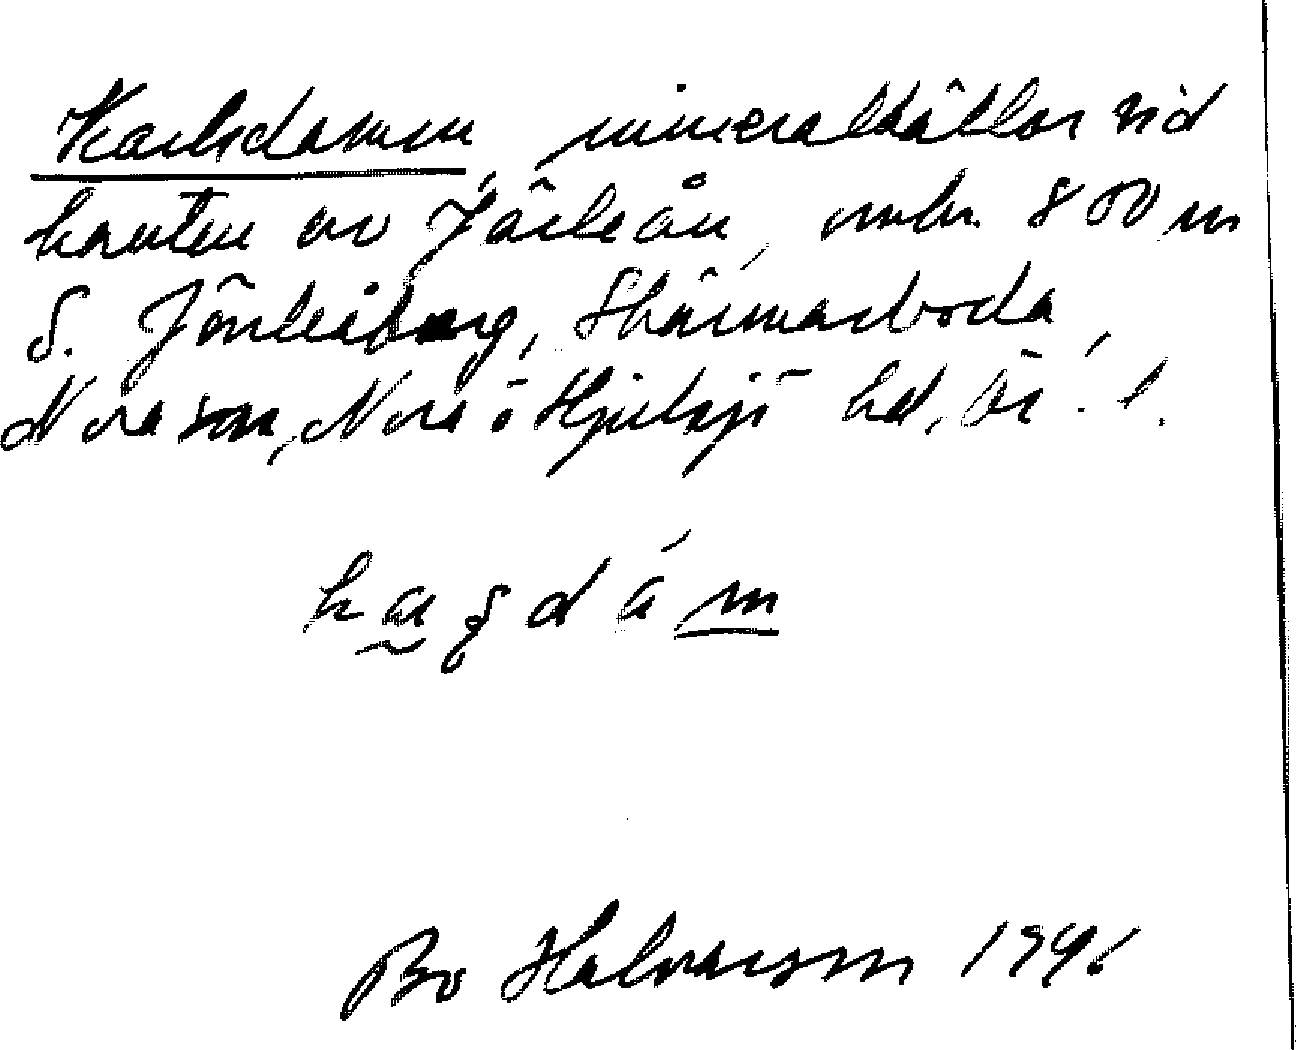 Karlsdamm, mineralkällor vid
kanten av Järleån, omkr. 800 m
S. Järleåborg, Skärmarboda,
Nora sn, Nora o Hjulsjö hd, Ör. l.
kaʂdám
Bo Halvarson 1991